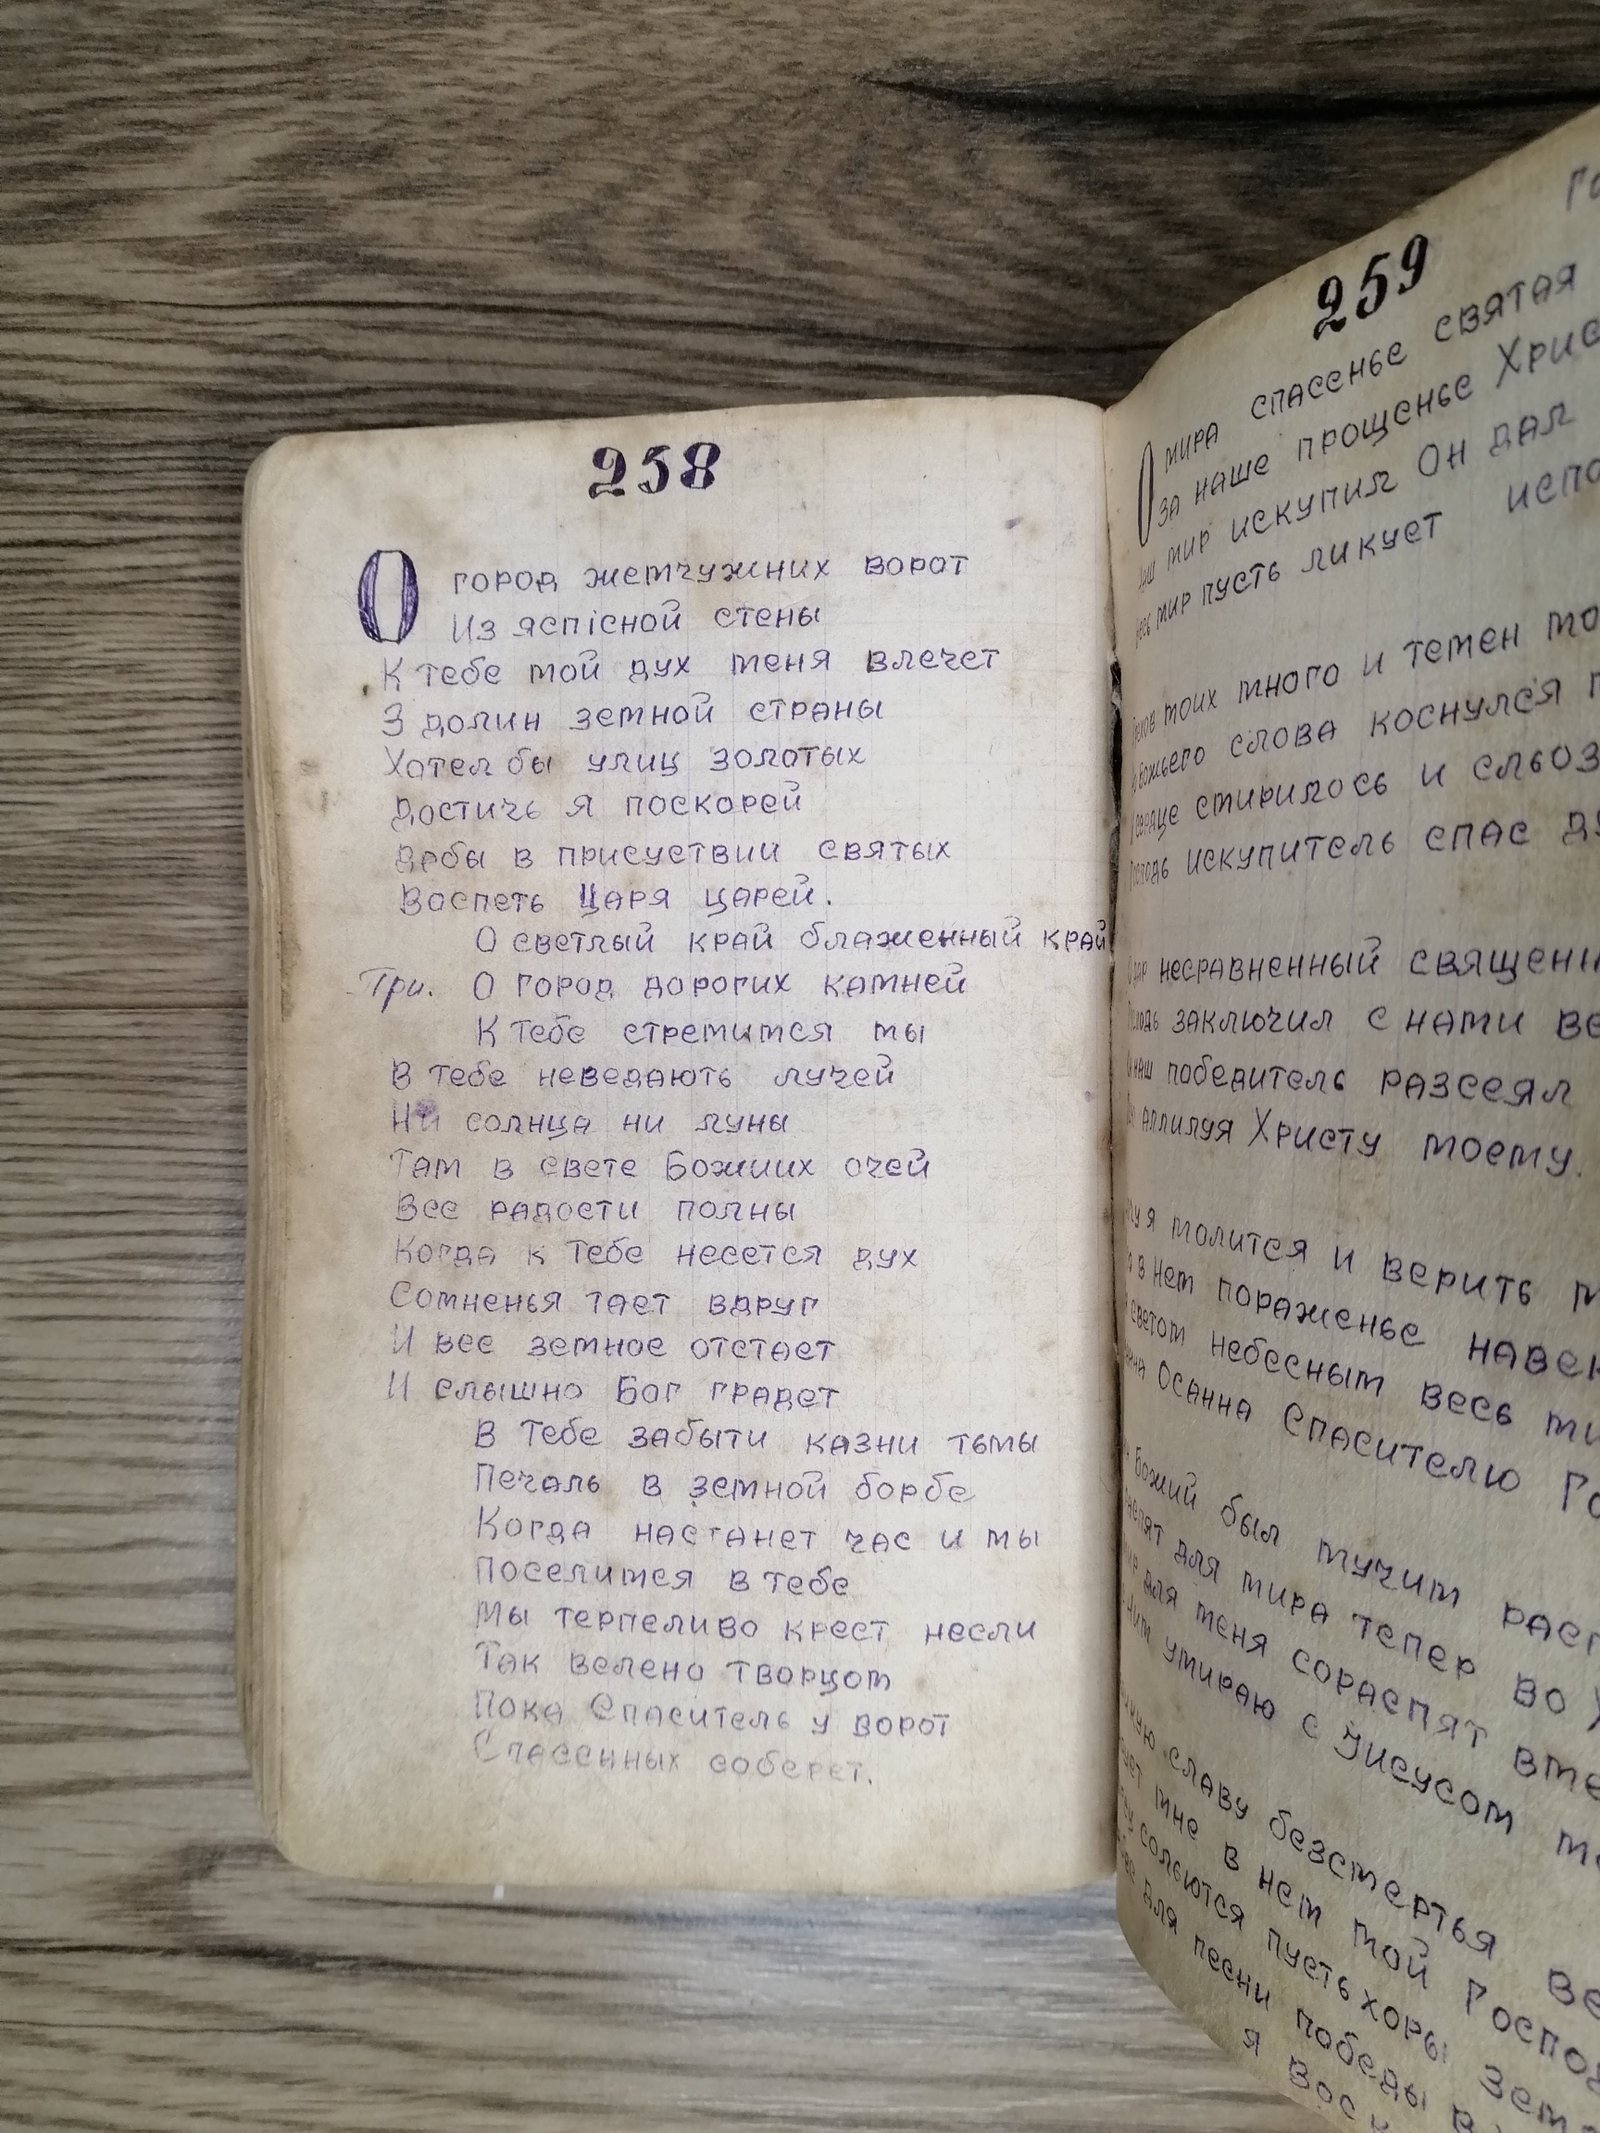 258
О город жемчужних ворот
Из яспісной стены
К тебе мой дух меня влечет
З долин земной страны
Хотел бы улиц золотых
Достичь я поскорей
Дабы в присуствии святых
Воспеть Царя царей.
О светлый край блаженный край
При. О город дорогих камней
К тебе стремимся мы
В тебе неведають лучей
Ни солнца ни луны
Там в свете Божиих очей
Все радости полны
Когда к тебе несется дух
Сомненья тает вдруг
И все земное отстает
И слышно Бог градет
В тебе забыти казни тьмы
Печаль в земной борбе
Когда настанет час и мы
Поселимся в тебе
Мы терпеливо крест несли
Так велено творцом
Пока Спаситель у ворот
Спасенных соберет.
259
О мира спасенье святая
За наше прощенье
мир искупил Он дал
мир пусть ликует
моих много и темен
Божьего слова коснулся
сердце смирилось и
Господь искупитель спас
О дар несравненный
Господь заключил с нами
наш победитель разсеял
аллилуя Христу моему.
я молится и верить
в нем пораженье
светом небесным весь
Осанна Спасителю
Божий был мучим
для мира тепер во
для меня сораспят
умираю с Исусом
славу безсмертья
мне в нем мой
солються пусть хоры
для песни победы
я